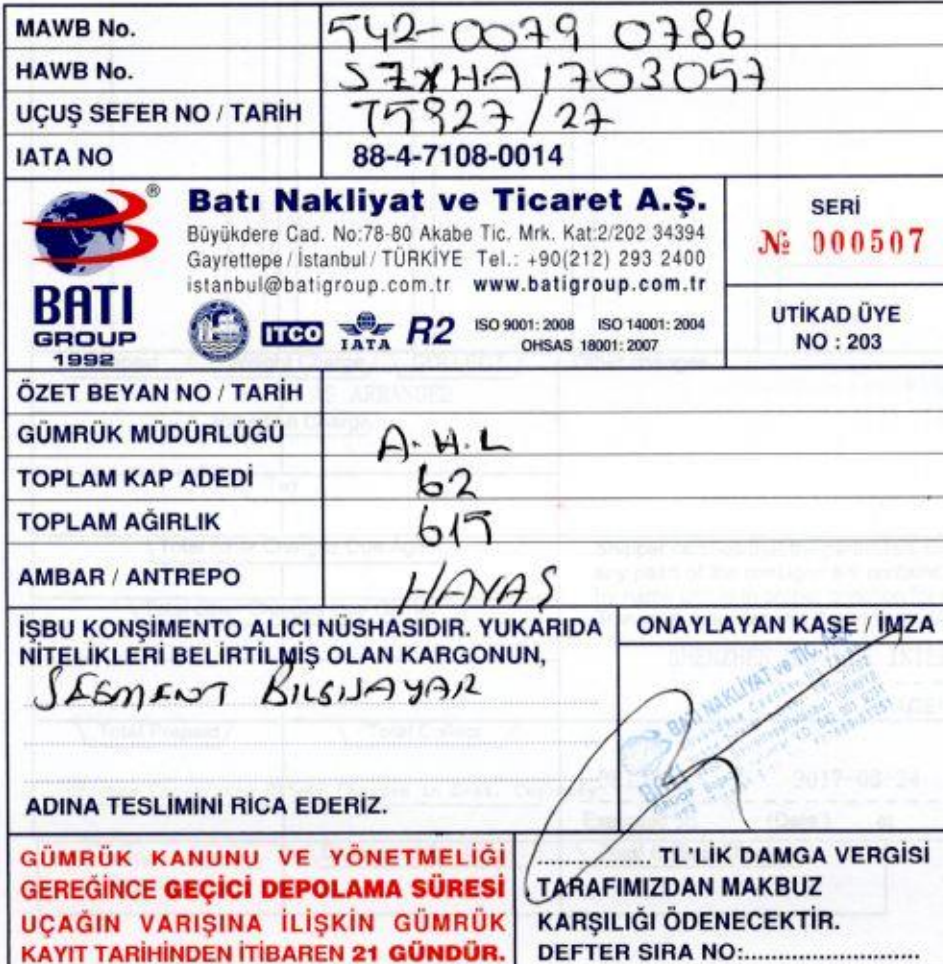 MAWB No. 542-0079 0786
HAWB No. SZXHA1703057
UÇUŞ SEFER NO / TARİH T5927/27
IATA NO 88-4-7108-0014
Batı Nakliyat ve Ticaret A.Ş.
Büyükdere Cad. No:78-80 Akabe Tic. Mrk. Kat:2/202 34394
Gayrettepe / İstanbul / TÜRKİYE Tel.: +90(212) 293 2400
istanbul@batigroup.com.tr www.batigroup.com.tr
®
BATI
GROUP
1992
ITCO IATA R2 ISO 9001: 2008 ISO 14001: 2004
OHSAS 18001: 2007
SERİ
№ 000507
UTİKAD ÜYE
NO : 203
ÖZET BEYAN NO / TARİH
GÜMRÜK MÜDÜRLÜĞÜ A.H.L
TOPLAM KAP ADEDİ 62
TOPLAM AĞIRLIK 615
AMBAR / ANTREPO HAVAŞ
İŞBU KONŞİMENTO ALICI NÜSHASIDIR. YUKARIDA
NİTELİKLERİ BELİRTİLMİŞ OLAN KARGONUN,
SEGMENT BİLGİSAYAR
ADINA TESLİMİNİ RİCA EDERİZ.
ONAYLAYAN KAŞE / İMZA
BATI NAKLİYAT ve TİC. A.Ş.
2017-03-24
GÜMRÜK KANUNU VE YÖNETMELİĞİ
GEREĞİNCE GEÇİCİ DEPOLAMA SÜRESİ
UÇAĞIN VARIŞINA İLİŞKİN GÜMRÜK
KAYIT TARİHİNDEN İTİBAREN 21 GÜNDÜR.
................ TL'LİK DAMGA VERGİSİ
TARAFIMIZDAN MAKBUZ
KARŞILIĞI ÖDENECEKTİR.
DEFTER SIRA NO:..........................